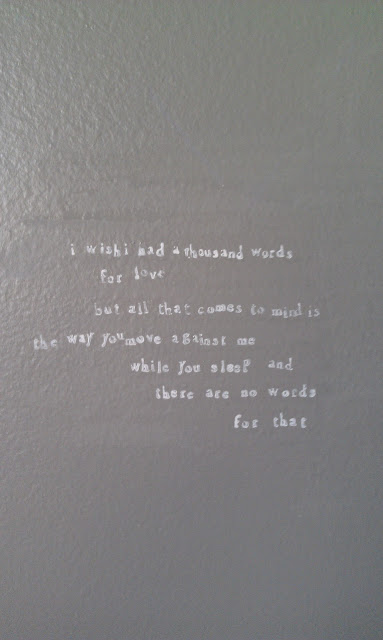 i wish i had a thousand words
for love
but all that comes to mind is
the way you move against me
while you sleep and
there are no words
for that